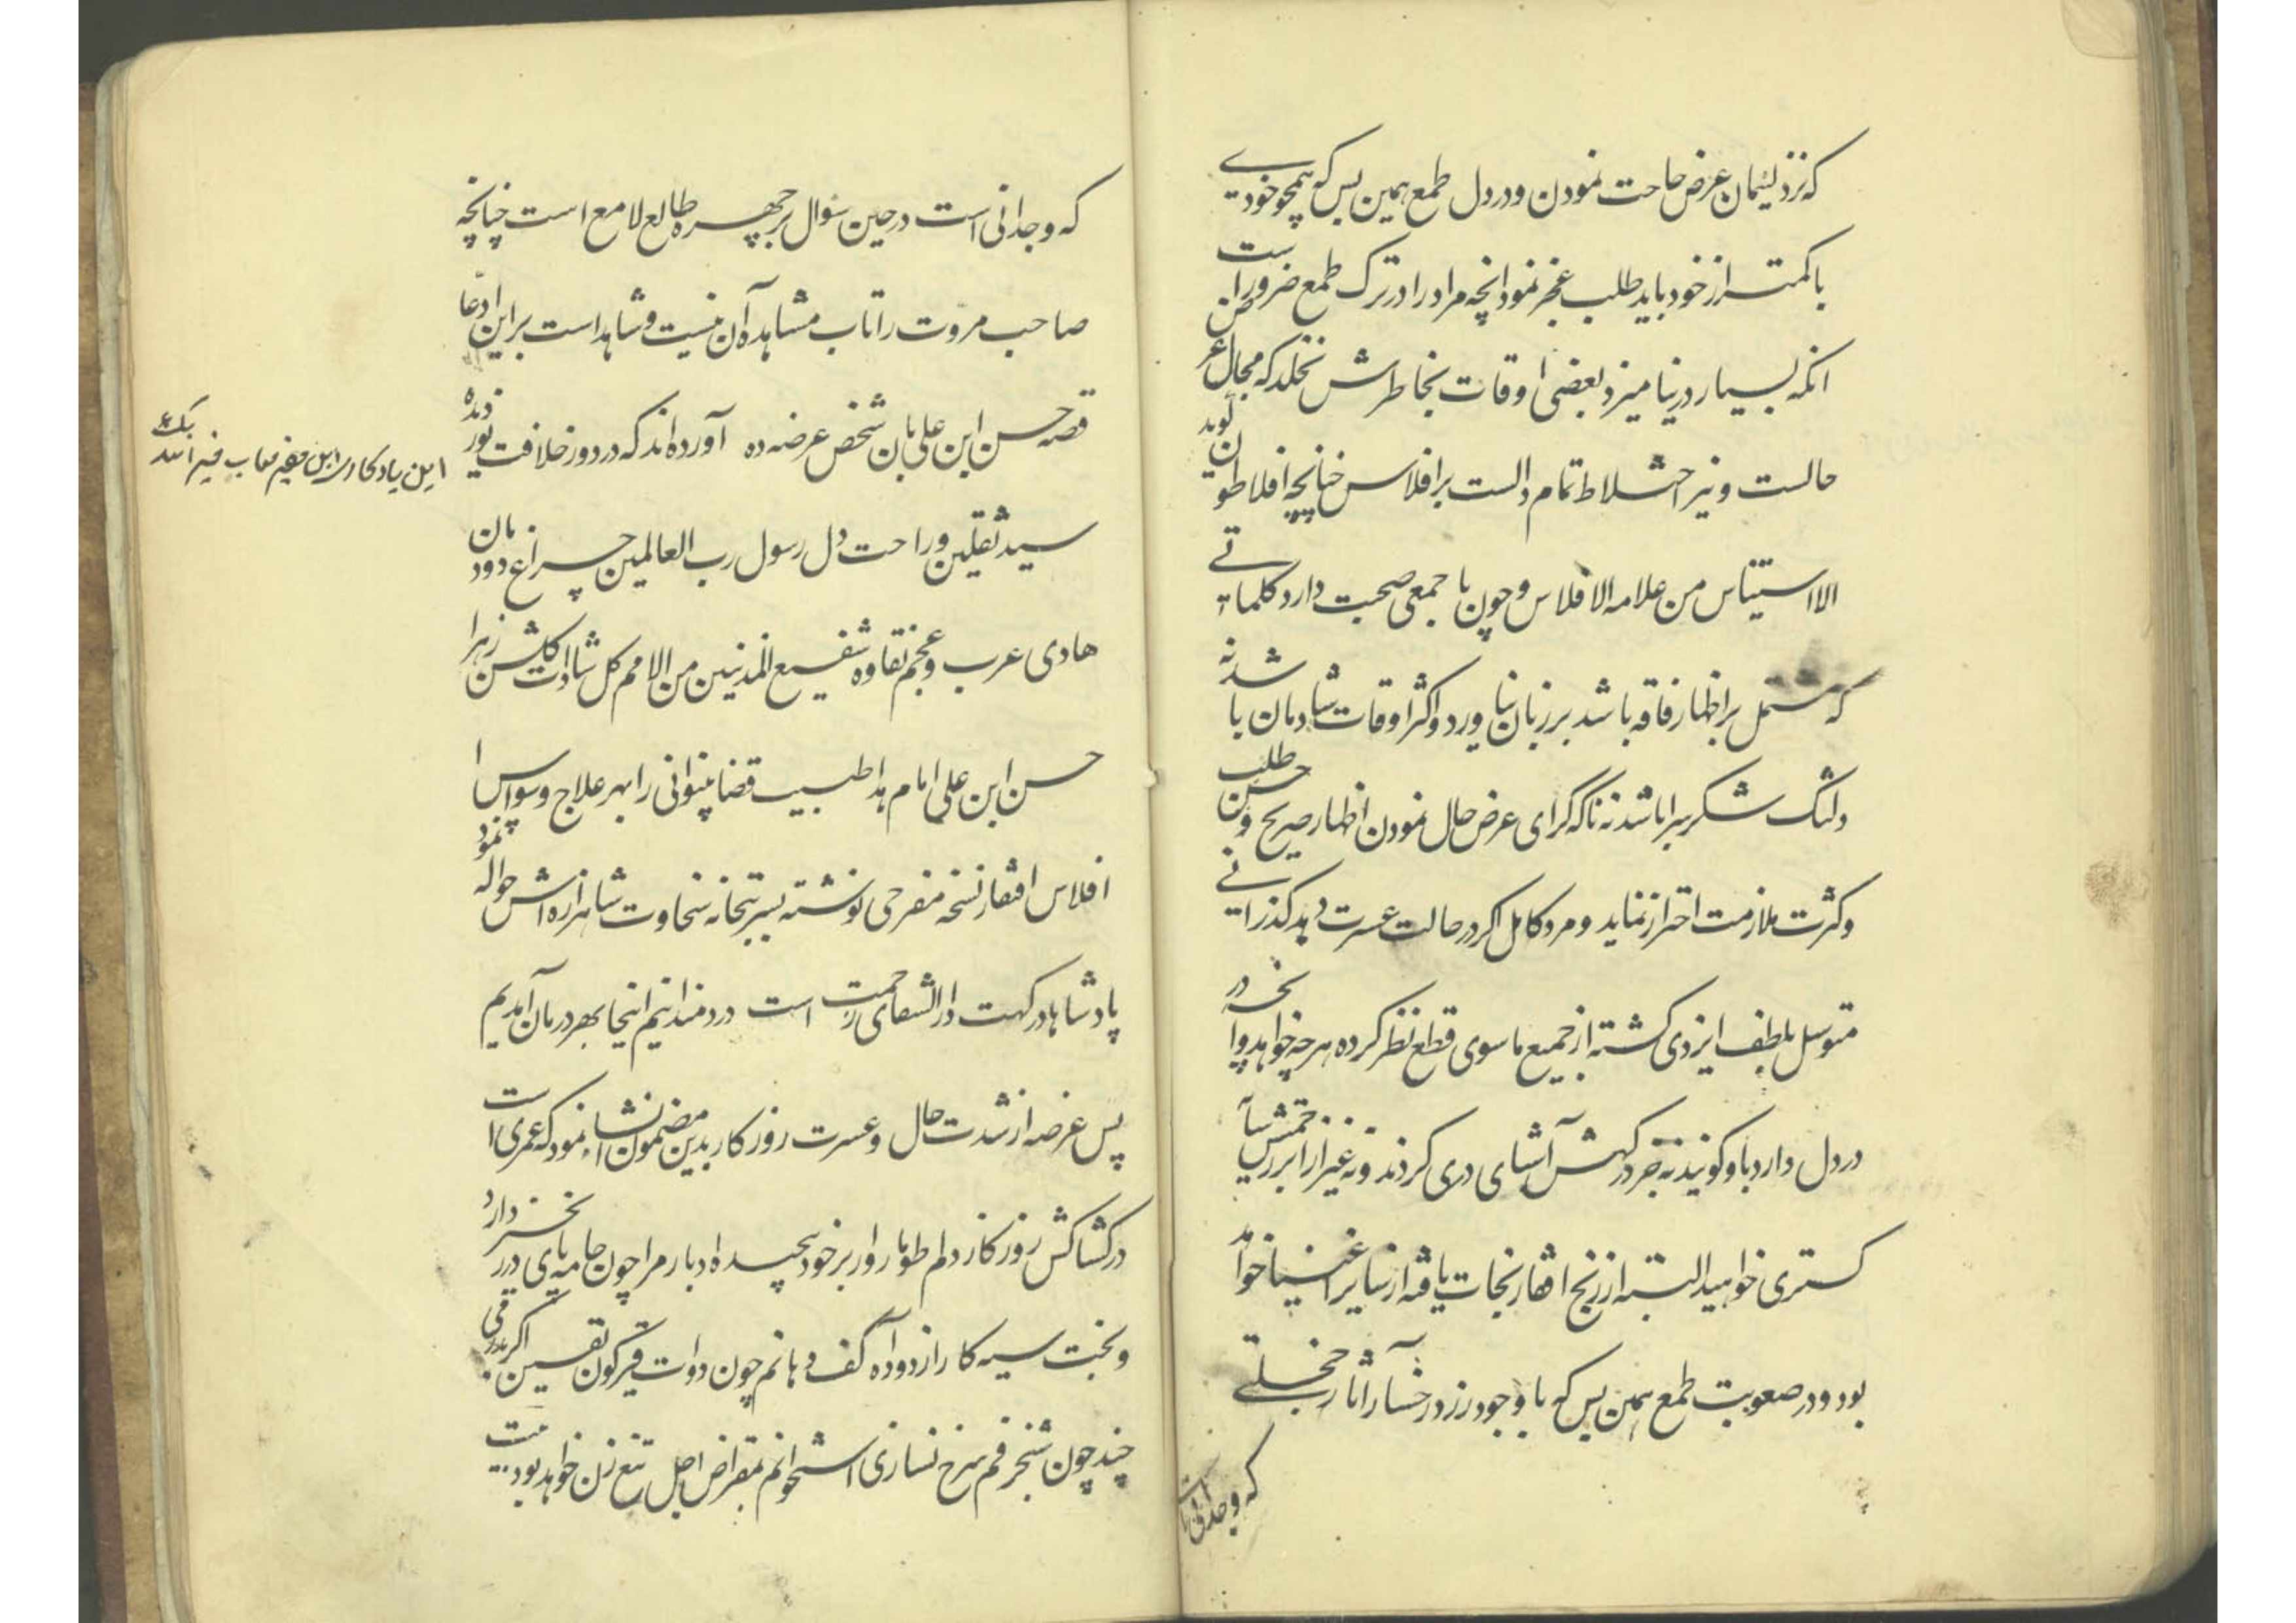 که نزد لئیمان عرض حاحت نمودن و در دل طمع همین بس که همچو خودی
باکمتر از خود باید طلب عجز نمود انچه مراد را در ترک طمع ضرور است
انکه بسیار در نیامیزد بعضی اوقات بخاطرش نخلد که مجال عرض
حالست و نیز اختلاط تمام دالست بر افلاس چنانچه افلاطون گوید
الاستیناس من علامه الافلاس و چون با جمعی صحبت دارد کلماتی
که مشتمل بر اظهار فاقه باشد بر زبان نیاورد و اکثر اوقات شادمان باشد نه
دلتنگ شکر سرا باشد نه ناکه کرای عرض حال نمودن اظهار صریح و حسن طلب
و کثرت ملازمت احتراز نماید و مرد کامل اکر در حالت عسرت دهد کذرانی
متوسل بلطف ایزدی کشته از جمیع ماسوی قطع نظر کرده هر چه خواهد و انچه در
در دل دارد با و کویند نه جز درکهش آشنای دری کردند و نه غیر از
کستری خواهید البته از رنج افتقار نجات یافته از سایر اغنیا خواهد
بود و در صعوبت طمع همین بس که با وجود زر در رخسار آثار خجلتی
که وجدانی است
که وجدانی است در حین سؤال بر چهره طالع لامع است چنانچه
صاحب مروت را تاب مشاهده آن نیست و شاهد است بر این ادعا
قصه حسن ابن علی بان شخص عرضه ده آورده اند که در دور خلافت نور دیده
سید ثقلین و راحت دل رسول رب العالمین چراغ دودمان
هادی عرب و عجم نقاوه شفیع المذنبین من الامم کل شاداب کلشن زهرا
حسن ابن علی امام هدا طبیب قضا بینوائی را بهر علاج وسواس
افلاس افتقار نسخه مفرحی نوشته بشربتخانه سخاوت شاهزاده اش حواله نمود
پادشاها درکهت دارالشفای رحمت است دردمندانیم اینجا بهر درمان آمدیم
پس عرضه از شدت حال و عسرت روزکار بدین مضمون انشاء نمود که عمری است
در کشاکش روزکار دلم طومار وار بر خود پیچیده ادبار مرا چون جامه های در
و بخت سیه کار از دوده کف دهانم چون دوات قیرکون نفسین اکر
چند چون شنجرفم سرخ نسازی استخوانم بمقراض اجل تیغ زن خواهد بود
این یادکاری این فقیر